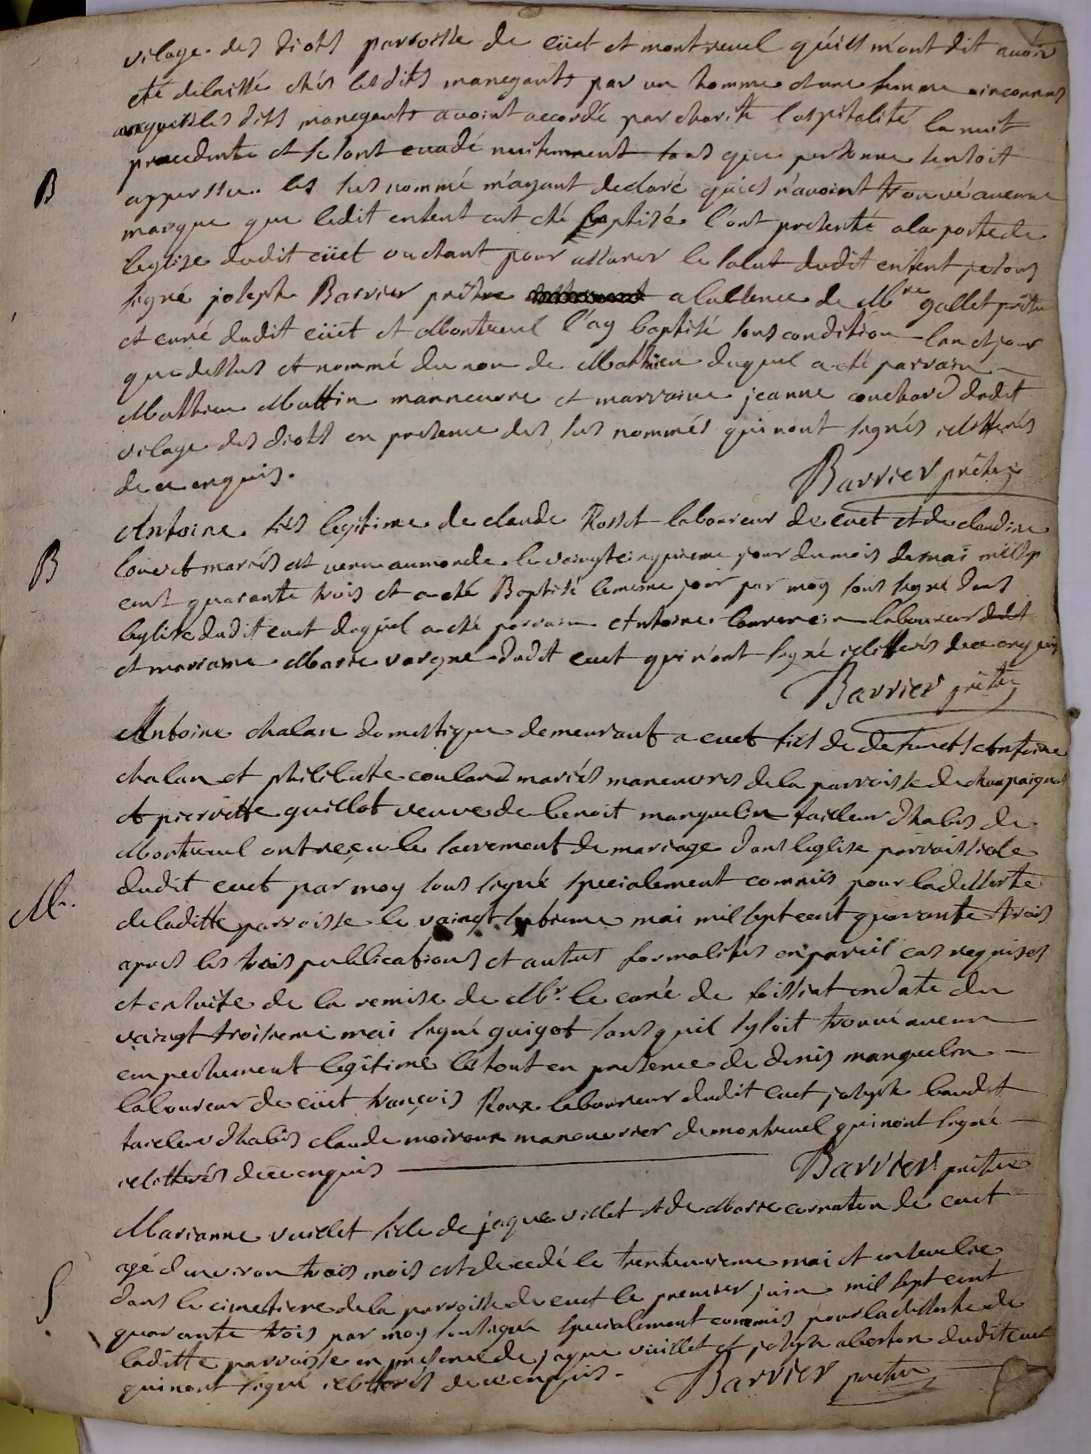 vilage des diots parroisse de cüet et montreuel qu'ils m'ont dit avoir
eté delaissé chés lesdits manegants par un homme et une femme inconnus
auxquels lesdits manegants avoint accordé par charité lospitalité la nuit
precedente et se sont evadé nuitemment sans que personne sen soit
apperssue. les sus nommé m'ayant declaré qu'ils n'avoint trouvé aucune
marque que ledit enfent eut eté baptisé l'ont presenté a la porte de
leglise dudit cüet ou etant pour assurer le salut dudit enfent je sous
signé joseph Barrier prêtre a labsence de Mre gallet prêtre
et curé dudit cüet et Montreuel l'ay baptisé sous condition lan et jour
que dessus et nommé du nom de Mathieu duquel a eté parrain
Mathieu Mattin manneuvre et marraine jeanne couchard dudit
vilage des diots en presence des sus nommés qui nont signés illitterés
de ce enquis.
Barrier prêtre
B
Antoine fils legitime de claude Rosset laboureur de cuet et de claudine
louet mariés est venu au monde le vaingtcinquieme jour du mois de mai mil sept
cent quarante trois et a eté Baptisé le meme jour par moy sous signé dans
leglise dudit cuet duquel a eté parrain Antoine laboureur dudit
et marraine Marie vargne dudit cuet qui n'ont signé illitterés de ce enquis
Barrier prêtre
B
Antoine chalan domestique demeurant a cuet fils de defunct Antoine
chalan et philiberte couland mariés maneuvres de la parroisse de champaignat
et pierrette guillot veuve de benoit manguelin tailleur d'habis de
Montreuel ont reçu le sacrement de mariage dans leglise parroissiale
dudit cuet par moy sous signé specialement commis pour la desserte
de laditte parroisse le vaingt septieme mai mil sept cent quarante trois
apres les trois publications et autres formalités en pareil cas requises
et ensuite de la remise de Mr. le curé de foissiat en date du
vaingt troisieme mai signé guigot sans quil sy soit trouvé aucun
empechement legitime le tout en presence de denis manguelin
laboureur de cüet françois Roux laboureur dudit cuet joseph baudet
taileur d'habis claude moiroux maneuvrier de montreuel qui nont signé
illitterés de ce enquis
Barrier prêtre
M.
Marianne vuillet fille de jaque villet et de Marie cornaton de cuet
agé d'environ trois mois est decedé le trenteunieme mai et ensevelie
dans le cimetiere de la parroisse de cuet le premier juin mil sept cent
quarante trois par moy soussigné specialement commis pour la desserte de
laditte parroisse en presence de jaque vuillet et joseph aberton dudit cuet
qui nont signé illitterés de ce enquis.
Barrier prêtre
S